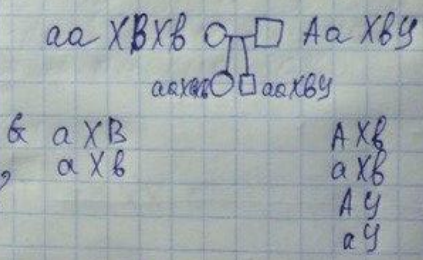 aa XBXb Aa XbY
aaXbXb aaXbY
G aXB AXb
, aXb aXb
AY
aY